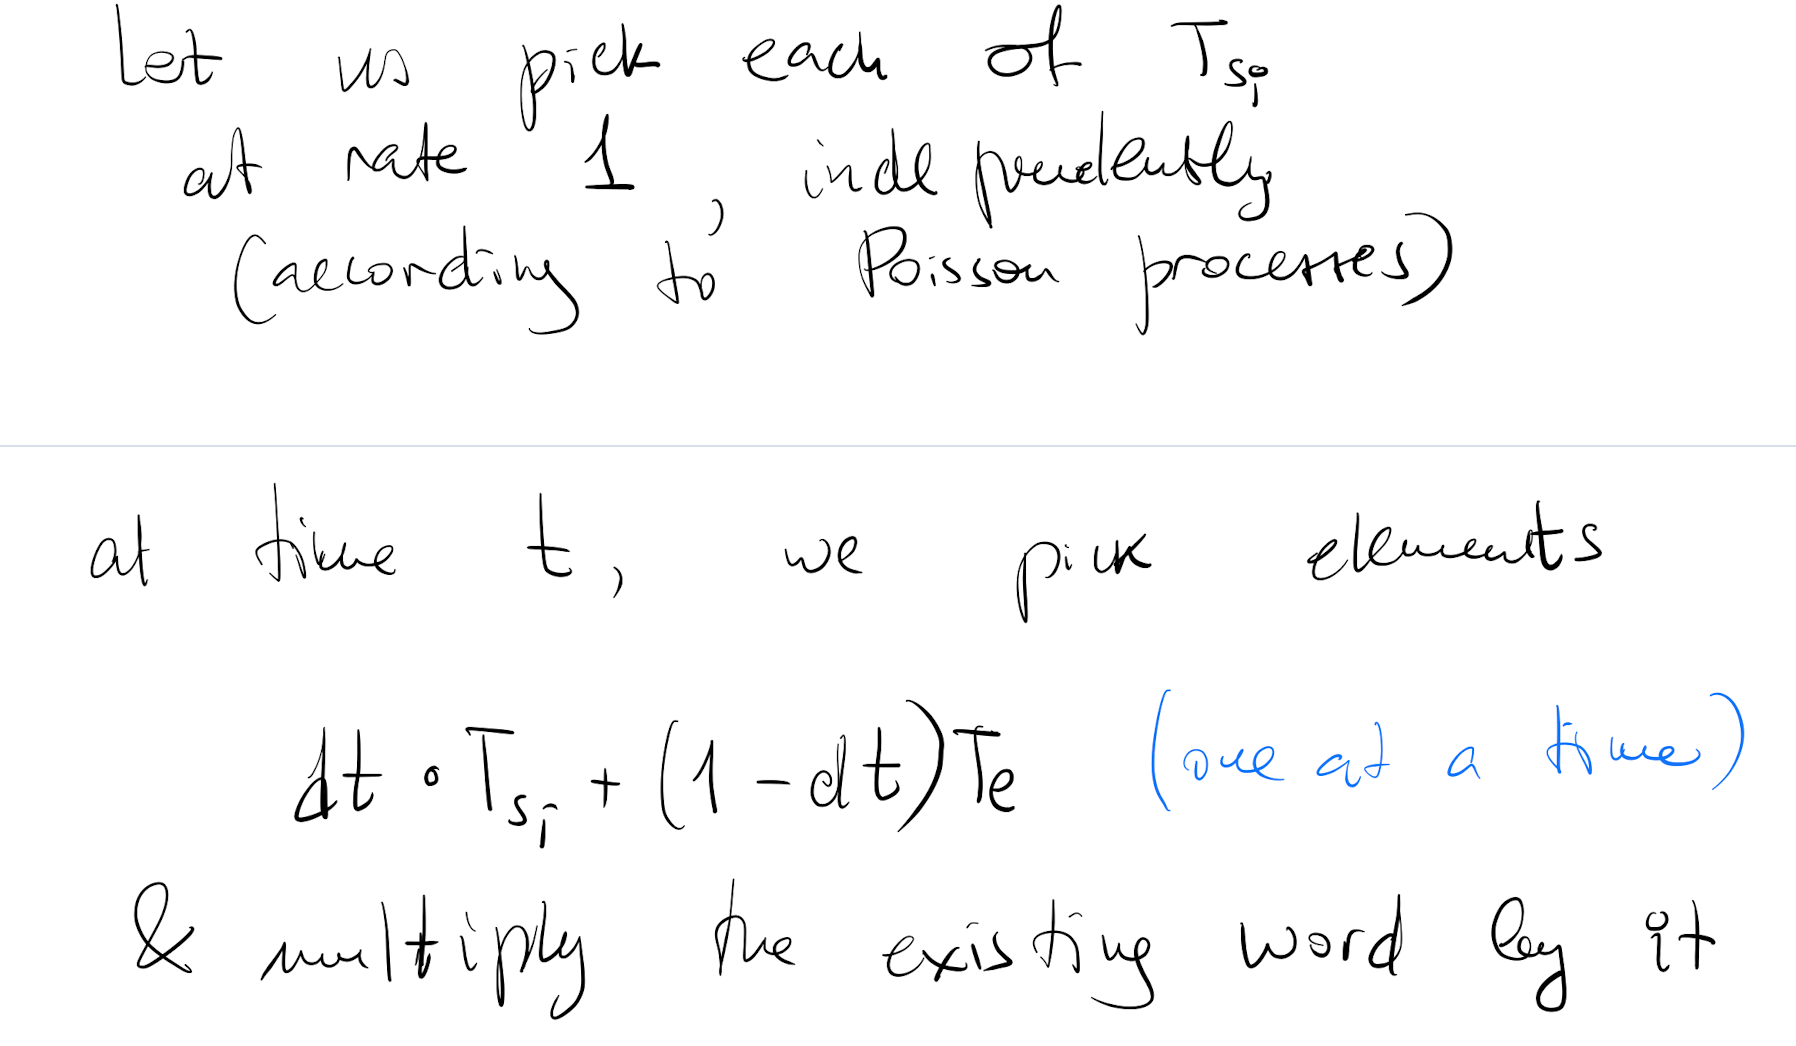 Let us pick each of T_{s_i}
at rate 1, independently
(according to Poisson processes)
at time t, we pick elements
dt · T_{s_i} + (1 - dt) T_e (one at a time)
& multiply the existing word by it